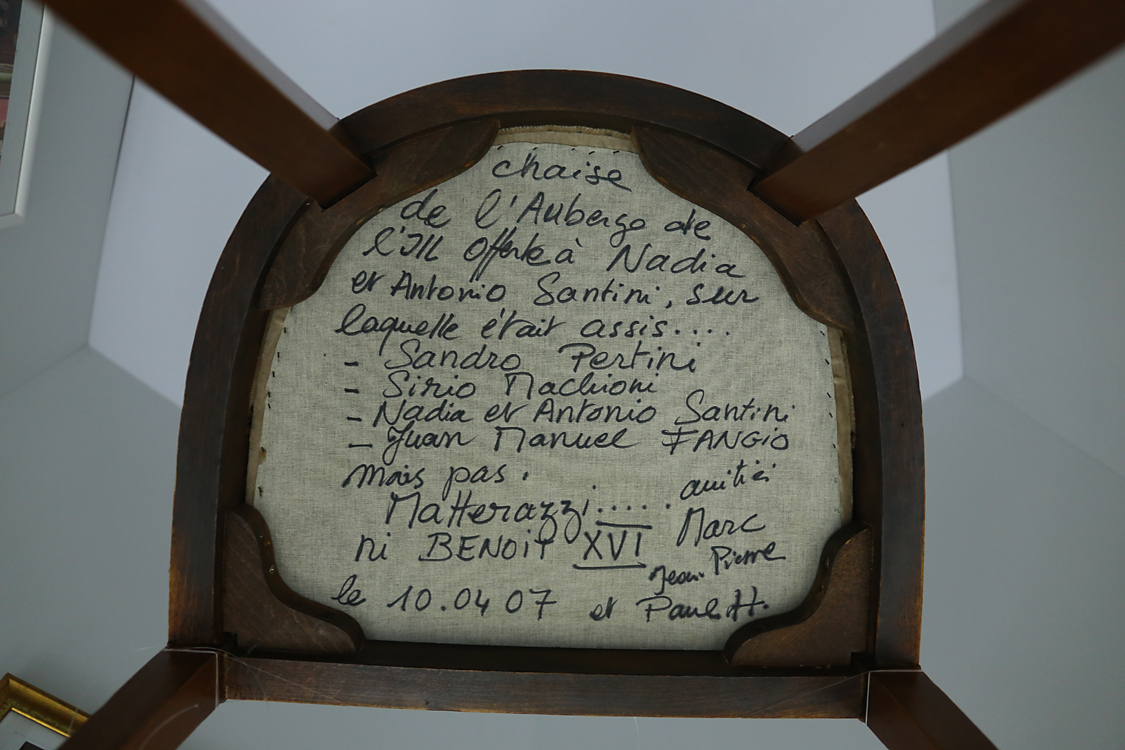 chaise
de l'Auberge de
l'Ill offerte à Nadia
et Antonio Santini, sur
laquelle était assis....
- Sandro Pertini
- Sirio Machioni
- Nadia et Antonio Santini
- Juan Manuel FANGIO
mais pas.
Matterazzi.....
ni BENOIT XVI
amitiés
Marc
Jean-Pierre
et Paul H.
le 10.04 07